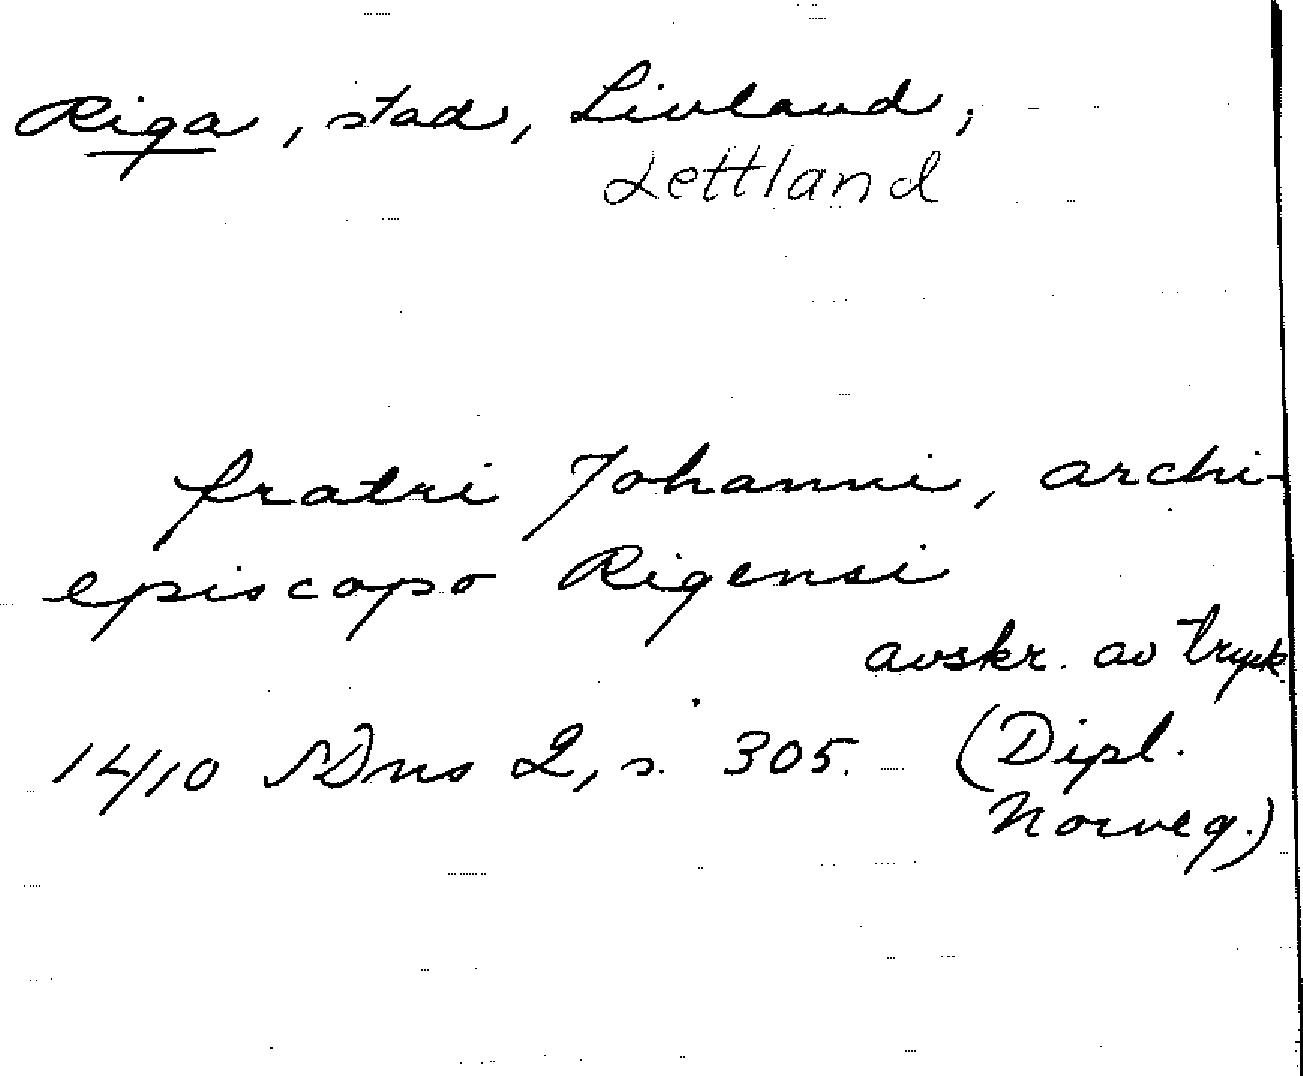 Riga, stad, Livland,
Lettland
fratri Johanni, archi-
episcopo Rigensi
avskr. av tryck
14/10 SDns 2, s. 305. (Dipl.
Norveg.)